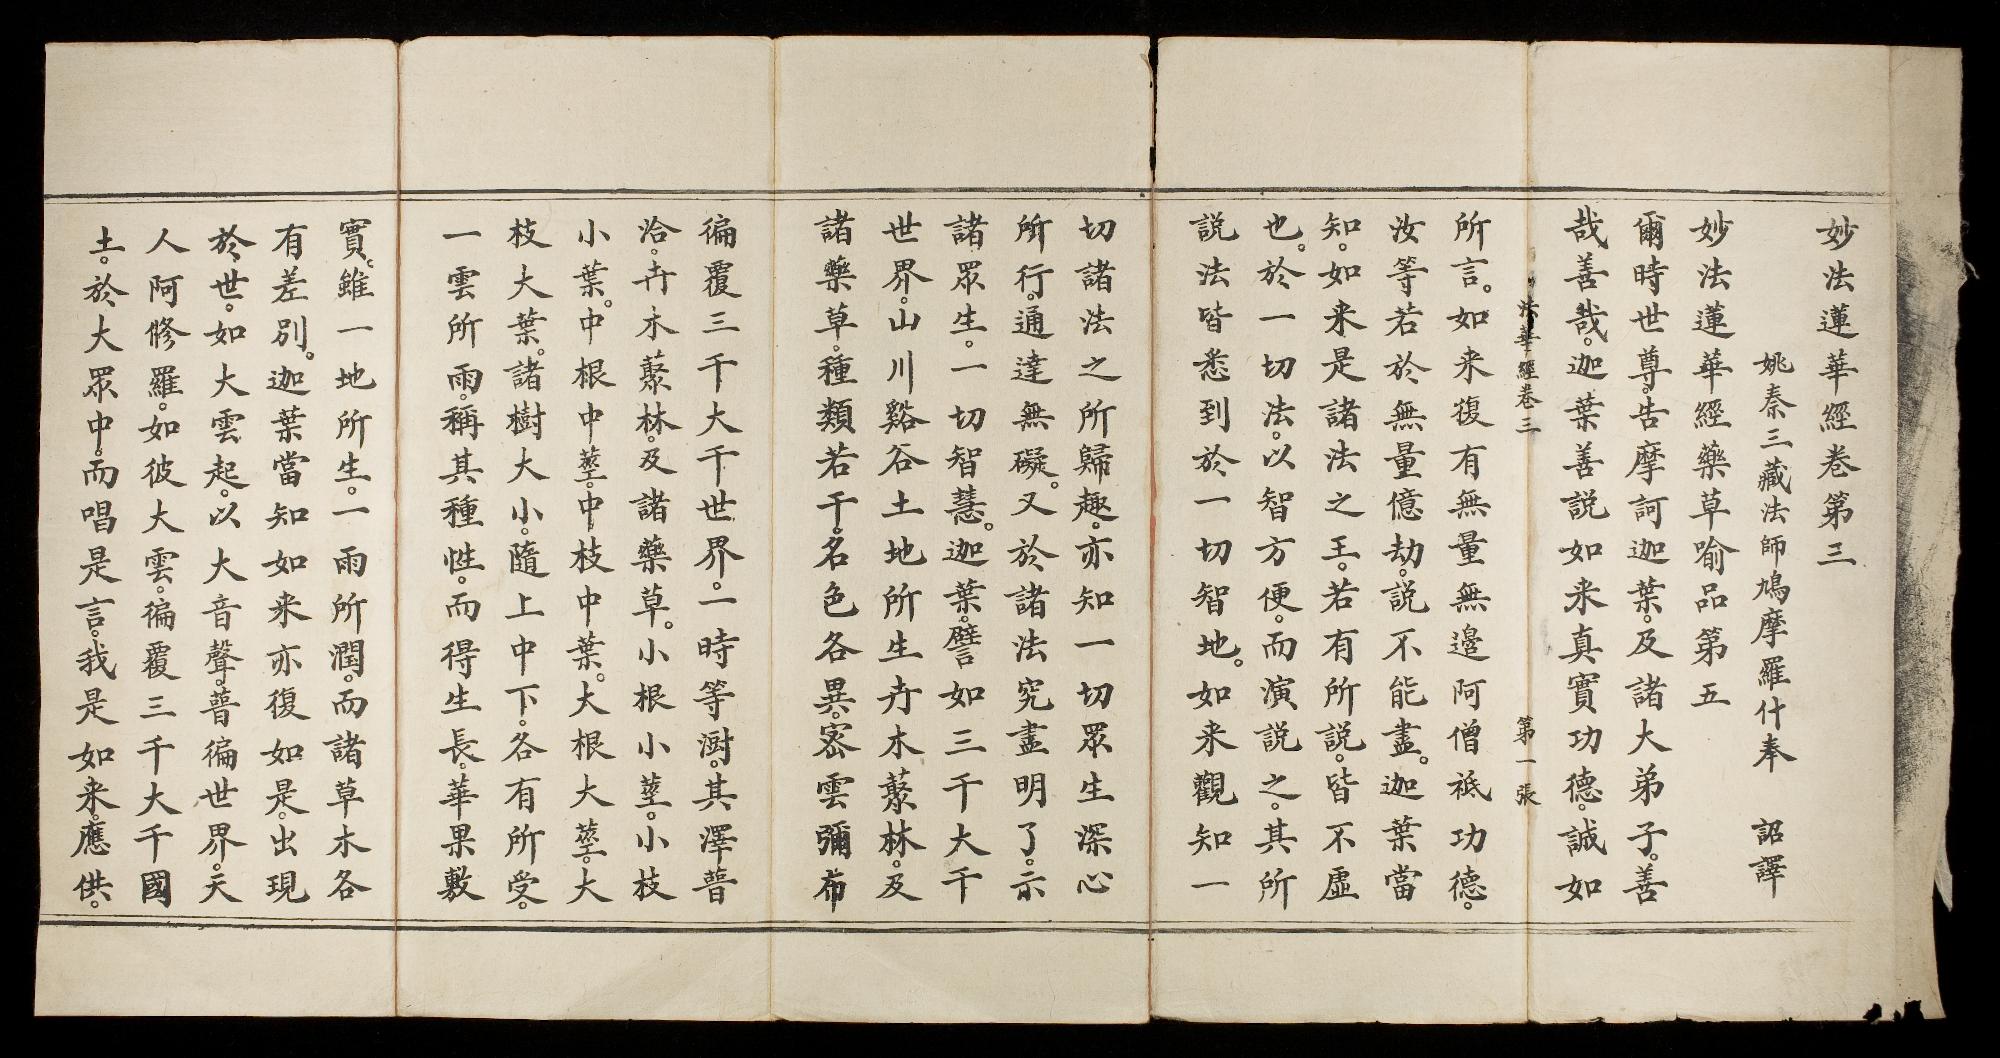 妙法蓮華經卷第三
姚秦三藏法師鳩摩羅什奉 詔譯
妙法蓮華經藥草喻品第五
爾時世尊。告摩訶迦葉。及諸大弟子。善
哉善哉。迦葉善説如来真實功德。誠如
法華經卷三 第一張
所言。如来復有無量無邊阿僧祇功德。
汝等若於無量億劫。説不能盡。迦葉當
知。如来是諸法之王。若有所説。皆不虛
也。於一切法。以智方便。而演説之。其所
説法皆悉到於一切智地。如来觀知一
切諸法之所歸趣。亦知一切眾生深心
所行。通達無礙。又於諸法究盡明了。示
諸眾生。一切智慧。迦葉。譬如三千大千
世界。山川谿谷土地所生卉木藂林。及
諸藥草。種類若干。名色各異。密雲彌布
徧覆三千大千世界。一時等澍。其澤普
洽。卉木藂林。及諸藥草。小根小莖。小枝
小葉。中根中莖。中枝中葉。大根大莖。大
枝大葉。諸樹大小。隨上中下。各有所受。
一雲所雨。稱其種性。而得生長。華果敷
實。雖一地所生。一雨所潤。而諸草木各
有差別。迦葉當知如来亦復如是。出現
於世。如大雲起。以大音聲。普徧世界。天
人阿修羅。如彼大雲。徧覆三千大千國
土。於大眾中。而唱是言。我是如来。應供。